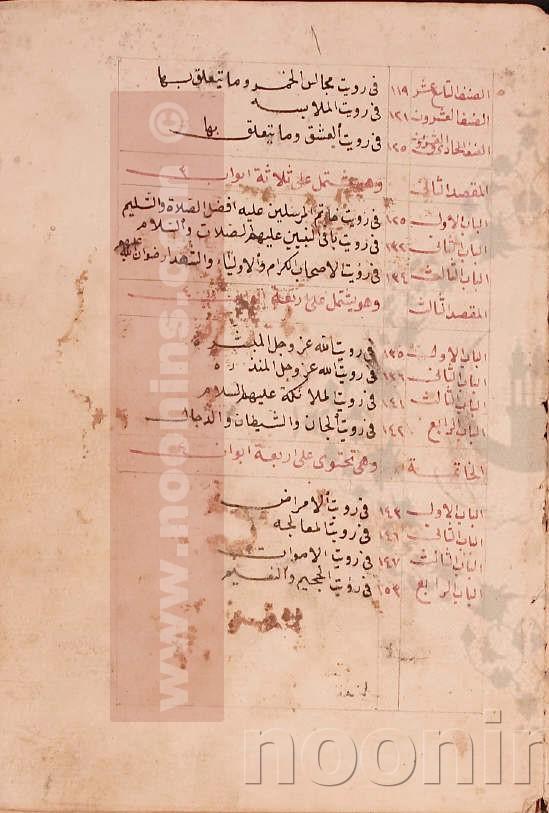 ١
الصنف التاسع عشر ١١٩ فى رويت مجالس الخمر وما يتعلق بها
الصنف العشرون ١٢١ فى رويت الملابسه
الصنف الحادى ١٢٥ فى رويت العشق وما يتعلق بها
المقصد الثانى وهو يشتمل على ثلاثة ابواب ٣
الباب الاول ١٢٥ فى رويت خاتم المرسلين عليه افضل الصلاة والتسليم
الباب الثانى ١٣٢ فى رويت باقى النبيين عليهم الصلات والسلام
الباب الثالث ١٣٤ فى رؤيت الاصحاب الكرام والاولياء والشهدا رضوان
المقصد الثالث وهو يشتمل على اربعة
الباب الاول ١٣٥ فى رويت الله عز وجل
الباب الثانى ١٣٦ فى رويت الله عز وجل
الباب الثالث ١٤١ فى رويت الملائكة عليهم السلام
الباب الرابع ١٤٢ فى رويت الجان والشيطان والدجال
الخاتمة وهى تحتوى على اربعة ابواب
الباب الاول ١٤٣ فى رويت الامراض
الباب الثانى ١٤٦ فى رويت المعالجه
الباب الثالث ١٤٧ فى رويت الاموات
الباب الرابع ١٥٣ فى رؤيت الجحيم والنعيم
www.noonins.com ©
noonin